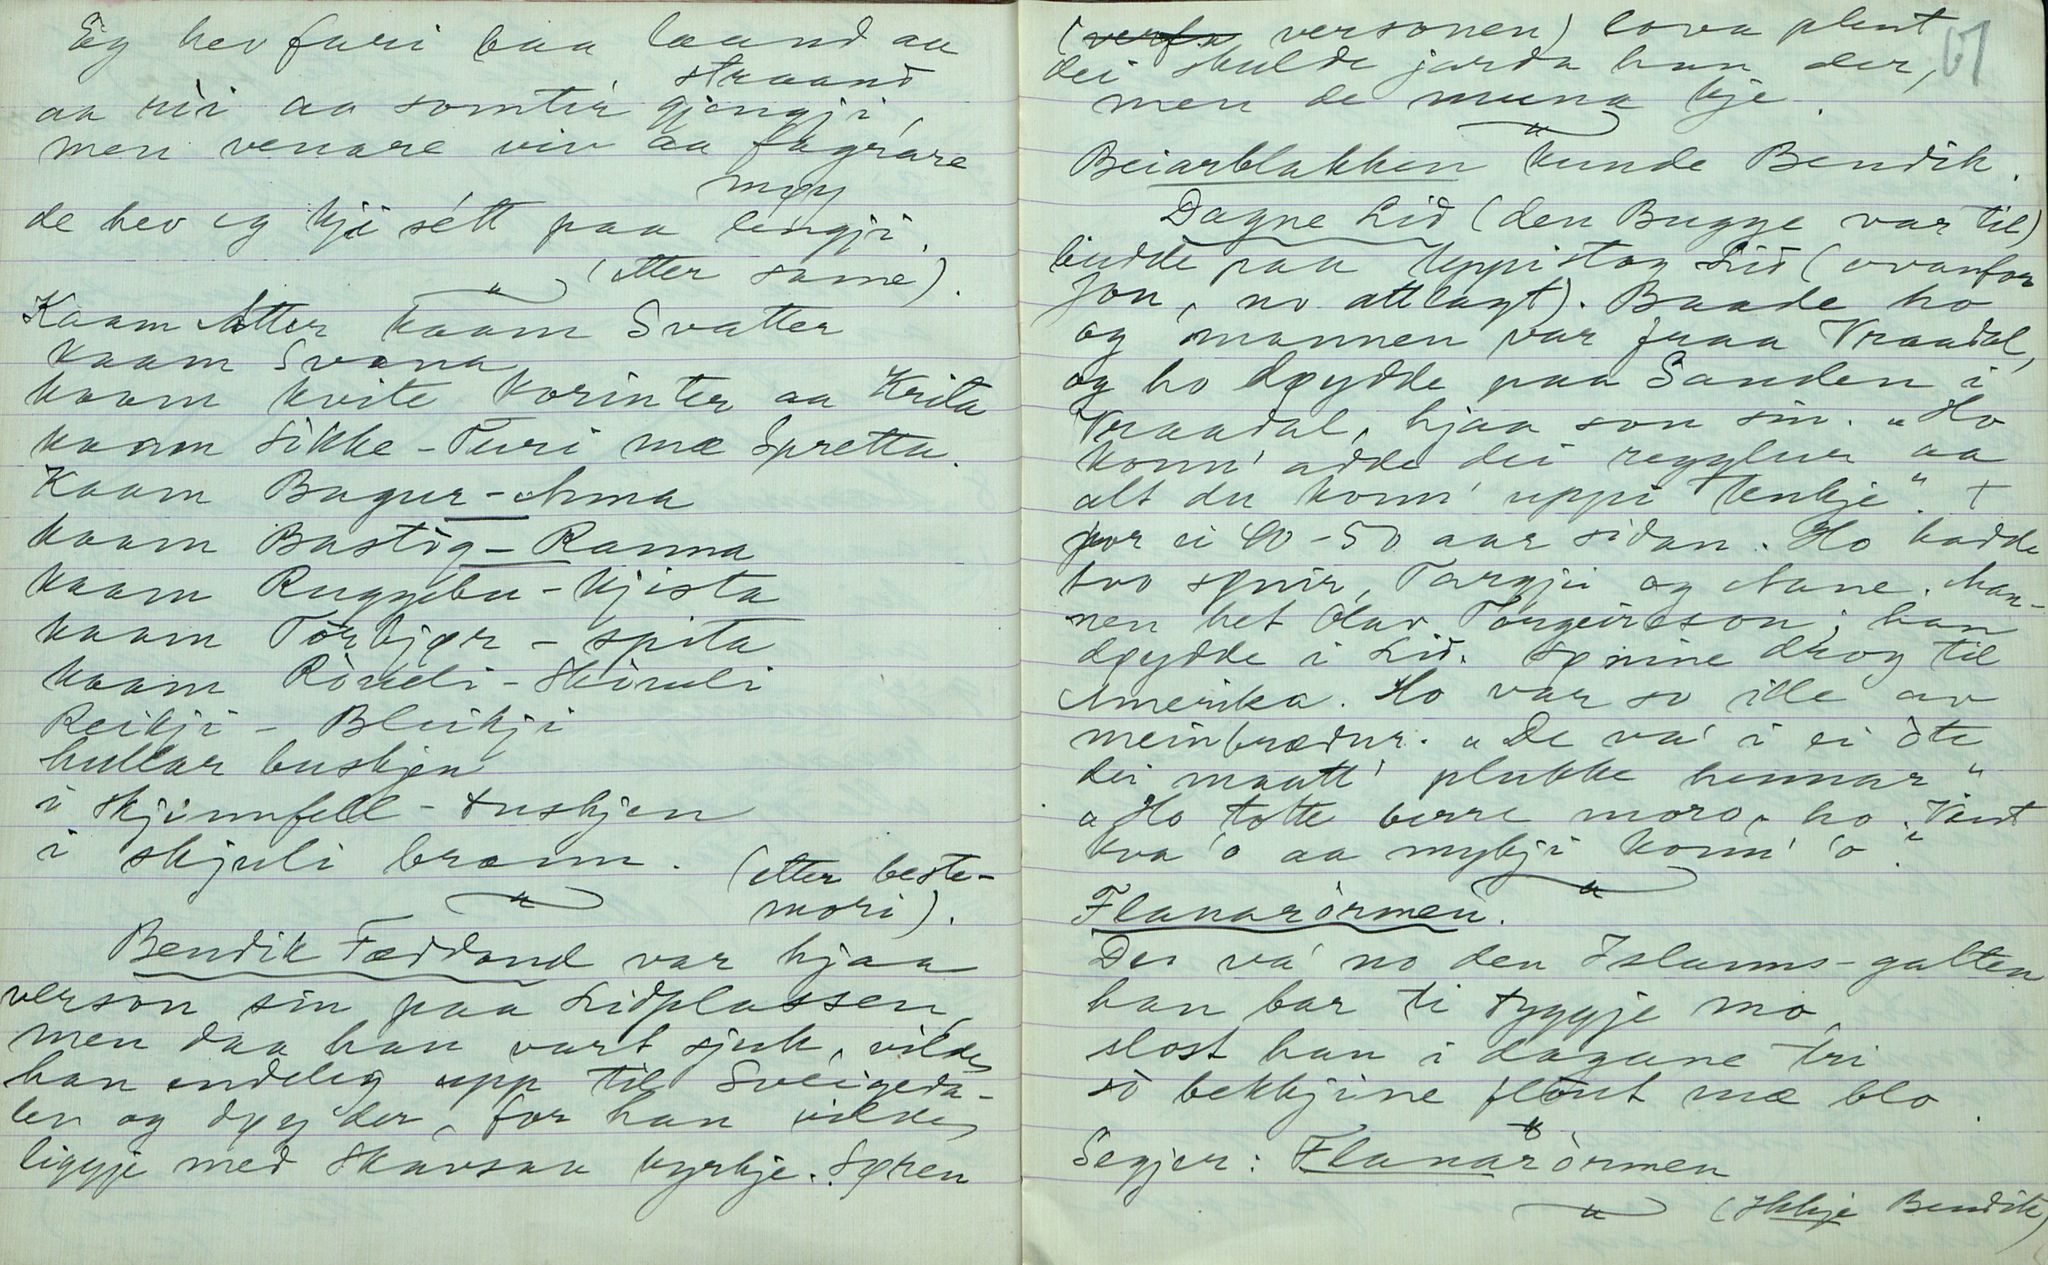 Eg hev fari baa laand aa
straand
aa rii aa somtir gjengji,
men venare viv aa fagrare
møy
de hev eg kji sétt paa lengji.
(etter same).
Kaam Atter kaam Svatter
kaam Svana
kaam kvite Korinter aa Krita
kaam Sikke-Turi mæ Spretta.
Kaam Bagur-Anna
kaam Bastig-Ranna
kaam Ruggebu-Kjista
kaam Torbjør-spita
kaam Ròndi-Skinuli
Reikji-Bleikji
hullar buskjen
i Skjinnfell-tuskjen
i skjuli braann. (etter beste-
mori).
Bendik Fæddand var hjaa
verson sin paa Lidplassen,
men daa han vart sjuk, vilde
han endeleg upp til Sveigeda-
len og døy der, for han vilde
liggje med Skavsaa kyrkje. Søren
(versonen) lova plent
dei skulde jarda han der,
men de muna kje.
61
Beiarblakken kunde Bendik.
Dagne Lid (den Bugge var til)
budde paa Uppistog Lid (ovanfor
Jon, no attlagt). Baade ho
og mannen var fraa Vraadal,
og ho døydde paa Sanden i
Vraadal, hjaa son sin. "Ho
konn' adde dei regglur aa
alt du konn' uppi tenkje". +
for ei 40-50 aar sidan. Ho hadde
tvo synir, Targjei og Aane. Man-
nen het Olav Torgeirsson; han
døydde i Lid. Synine drog til
Amerika. Ho var so ille av
meinbrædur. "De va' i ei òte
dei maatt' plukke hennar"
"Ho totte berre moro, ho. Veit
kva 'o aa mykji konn' 'o."
Flanarórmen.
Dei va' no den Islanns-galten
han bar ti tyggje mo,
slost han i dagane tri
so bekkjine flòut mæ blo.
Segjer: Flanarórmen
(Høkje Bendik)